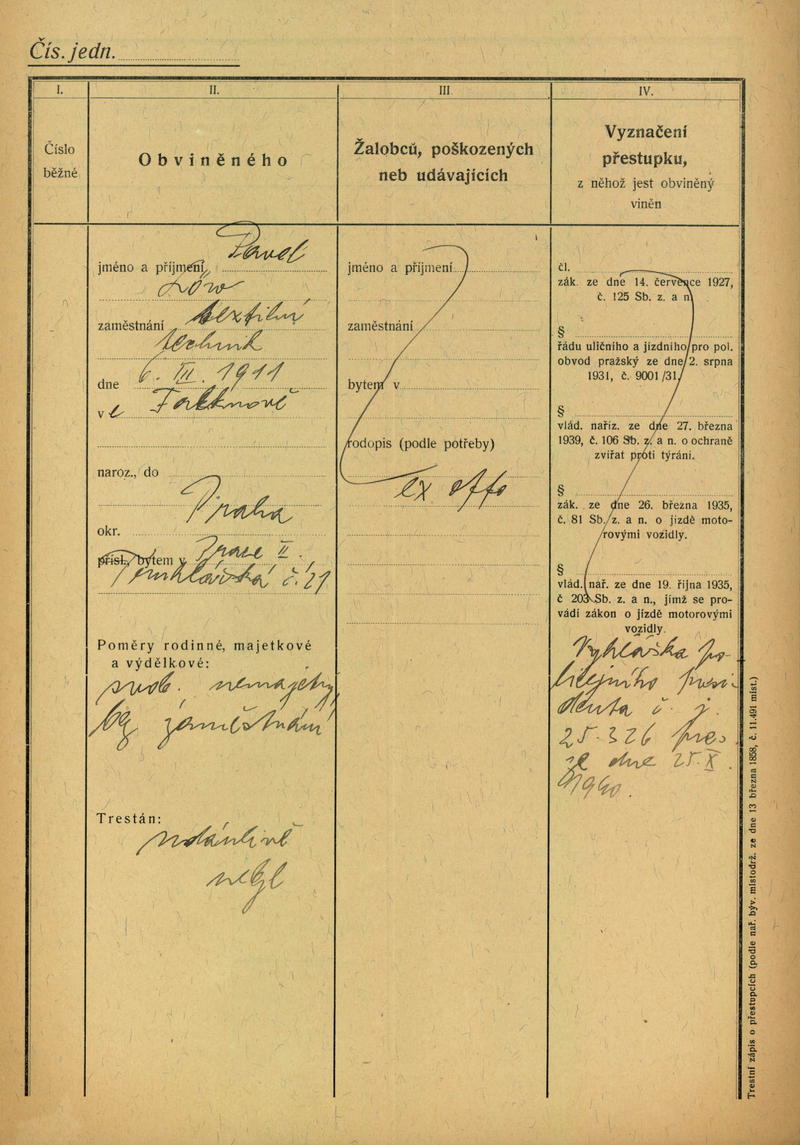 Čís. jedn.
I.
II.
III
IV.
Číslo
běžné
Obviněného
Žalobců, poškozených
neb udávajících
Vyznačení
přestupku,
z něhož jest obviněný
viněn
jméno a příjmení Pavel
Löw
zaměstnání textilní
technik
dne 6. III. 1911
v
naroz., do
Praha
okr.
přísl., bytem v Praze II.,
č. 21
Poměry rodinné, majetkové
a výdělkové:
svob. nemajetný
bez zaměstnání
Trestán:
nebyl
jméno a příjmení
zaměstnání
bytem v
rodopis (podle potřeby)
Ex offo
čl.
zák. ze dne 14. července 1927,
č. 125 Sb. z. a n
§
řádu uličního a jízdního pro pol.
obvod pražský ze dne 2. srpna
1931, č. 9001/31,
§
vlád. naříz. ze dne 27. března
1939, č. 106 Sb. z. a n. o ochraně
zvířat proti týrání.
§
zák. ze dne 26. března 1935,
č. 81 Sb. z. a n. o jízdě moto-
rovými vozidly.
§
vlád. nař. ze dne 19. října 1935,
č 203 Sb. z. a n., jímž se pro-
vádí zákon o jízdě motorovými
vozidly.
Vyhláška po-
licejního presi-
denta č. j.
25.326 pres
ze dne 25. X.
1940.
Trestní zápis o přestupcích (podle nař. býv. místodrž. ze dne 13 března 1858, č. 11.491 míst.)